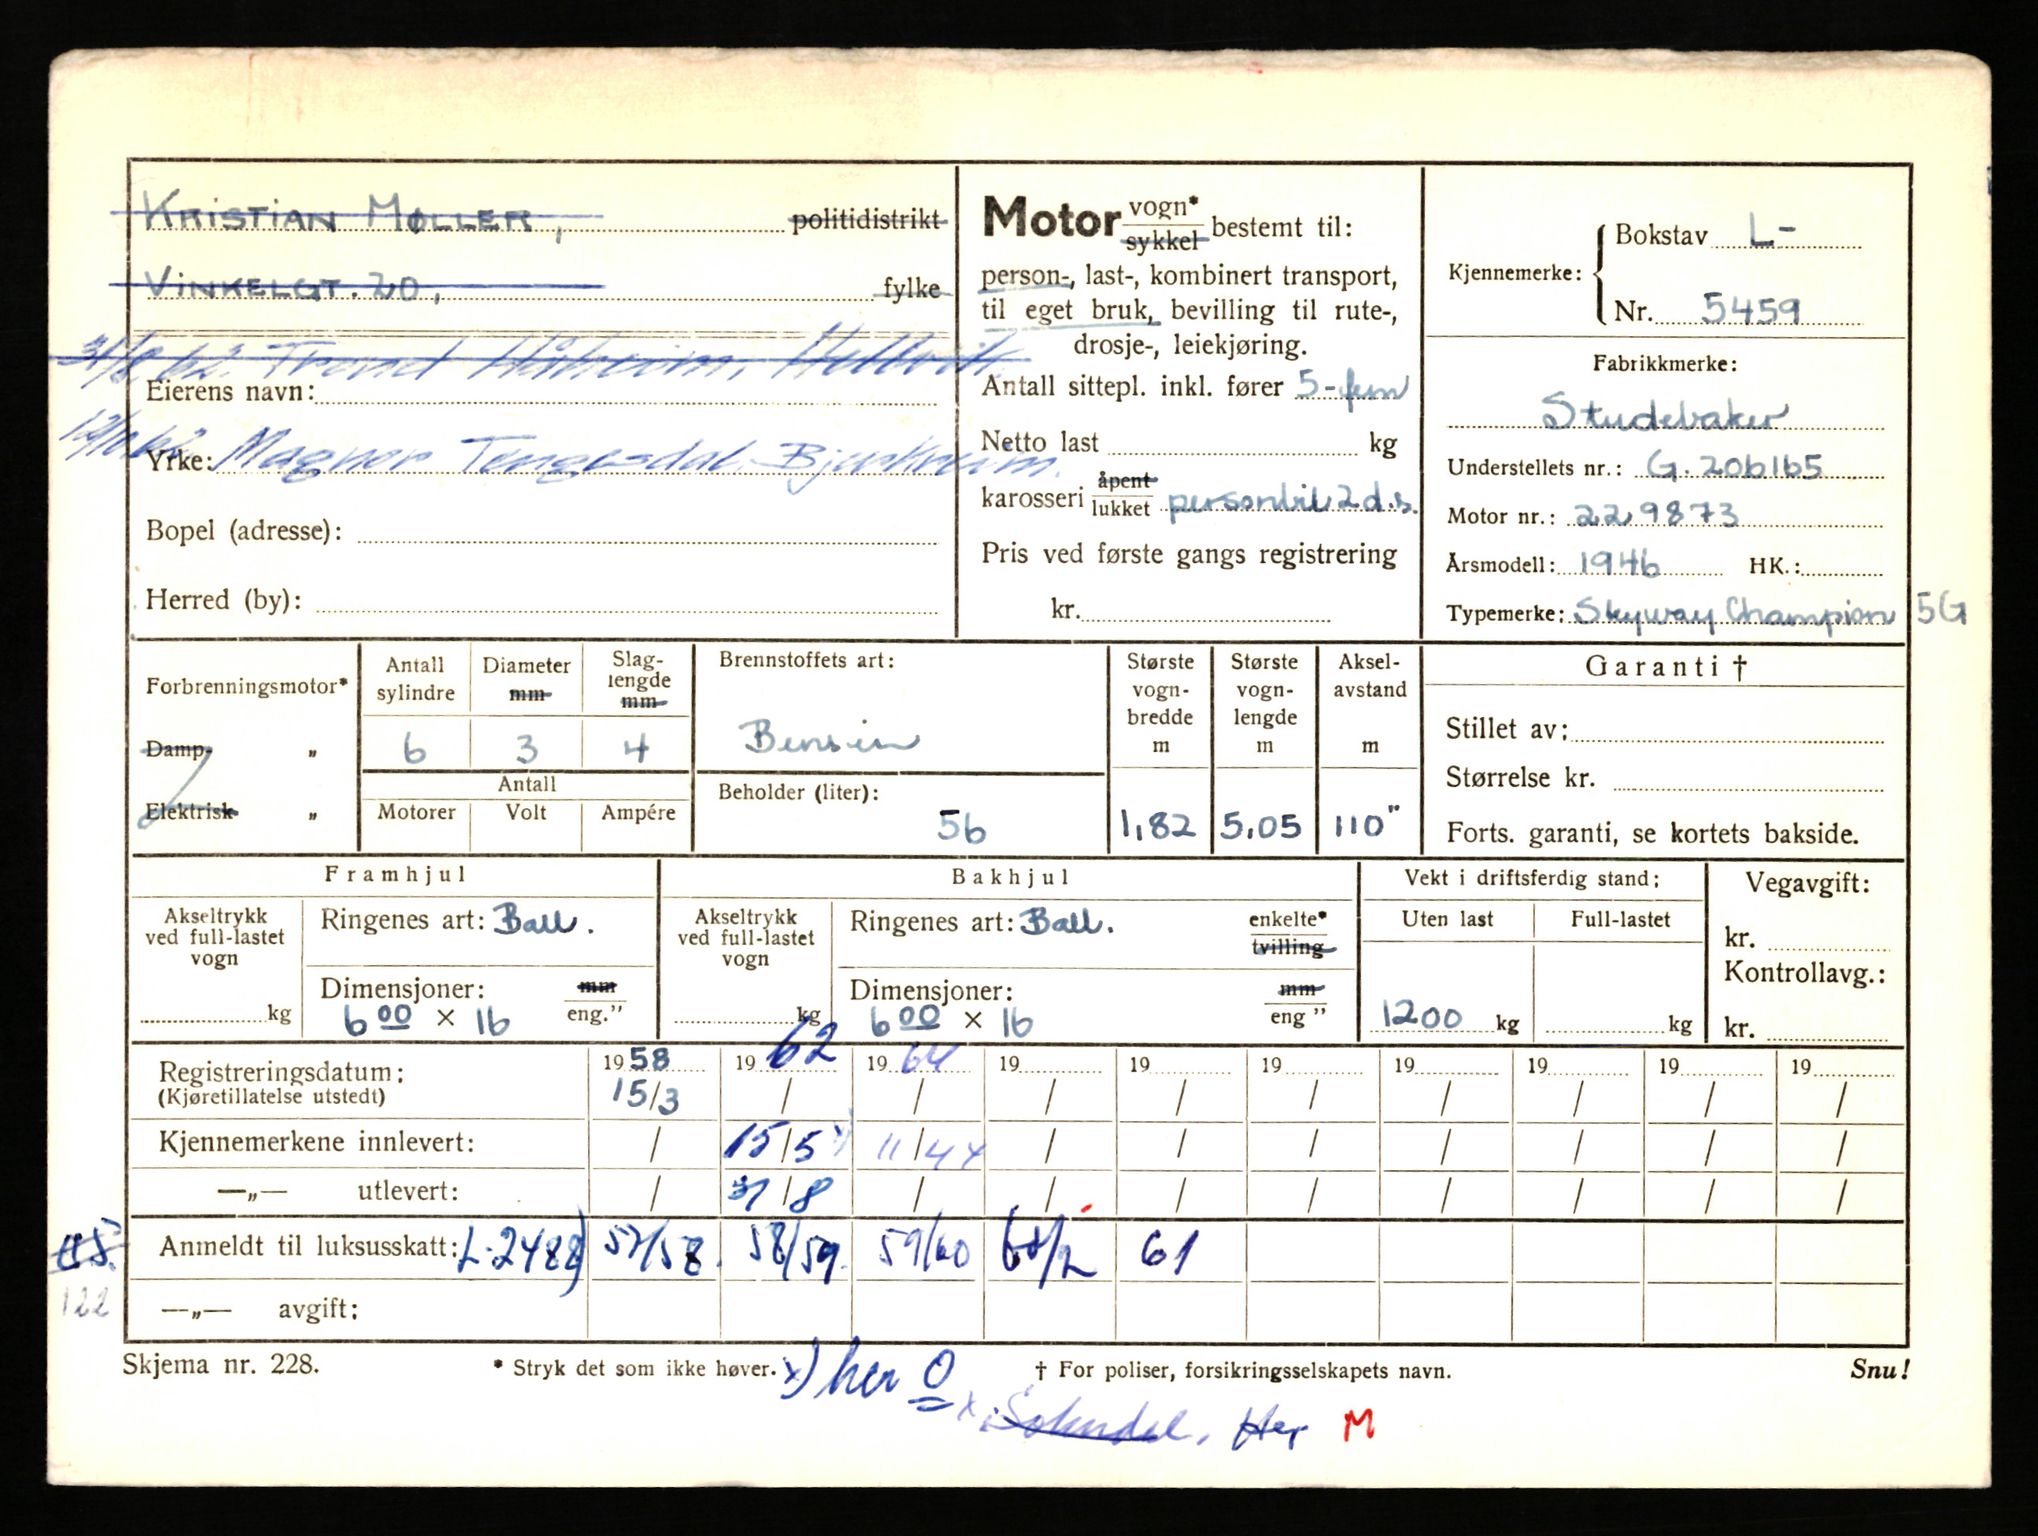 KRISTIAN MØLLER, politidistrikt
VINKELGT. 20, fylke
31/8 62. Trond Håheim, Hellvik
Eierens navn:
Yrke: Magnor Tengesdal. Bjerkreim.
Bopel (adresse):
Herred (by):
Motor vogn* sykkel bestemt til:
person-, last-, kombinert transport,
til eget bruk, bevilling til rute-,
drosje-, leiekjøring.
Antall sittepl. inkl. fører 5-fem
Netto last kg
karosseri åpent lukket personbil 2 d.s.
Pris ved første gangs registrering
kr.
Kjennemerke:
Bokstav L-
Nr. 5459
Fabrikkmerke:
Studebaker
Understellets nr.: G. 206165
Motor nr.: 229873
Årsmodell: 1946 HK.:
Typemerke: Skyway Champion 5G
Forbrenningsmotor*
Damp- „
Elektrisk „
Antall sylindre
6
Diameter mm
3
Slag-
lengde
mm
4
Antall
Motorer Volt Ampére
Brennstoffets art:
Bensin
Beholder (liter):
56
Største
vogn-
bredde
m
1,82
Største
vogn-
lengde
m
5,05
Aksel-
avstand
m
110"
Garanti †
Stillet av:
Størrelse kr.
Forts. garanti, se kortets bakside.
Framhjul
Akseltrykk
ved full-lastet
vogn
kg
Ringenes art: Ball.
Dimensjoner: mm
6 00 × 16 eng."
Bakhjul
Akseltrykk
ved full-lastet
vogn
kg
Ringenes art: Ball. enkelte*
tvilling
Dimensjoner: mm
6 00 × 16 eng "
Vekt i driftsferdig stand:
Uten last Full-lastet
1200 kg kg
Vegavgift:
kr.
Kontrollavg.:
kr.
Registreringsdatum: 1958 1962 1964 19 19 19 19 19 19 19
(Kjøretillatelse utstedt) 15/3 / / / / / / / / /
Kjennemerkene innlevert: / 15/5 x) 11/4 x / / / / / / /
—„— utlevert: / 31/8 / / / / / / / /
Anmeldt til luksusskatt: L-2488) 57/58. 58/59. 59/60 60/2 61
122 —„— avgift:
Skjema nr. 228. * Stryk det som ikke høver. x) her O † For poliser, forsikringsselskapets navn. Snu!
x. Sokndal. Her M